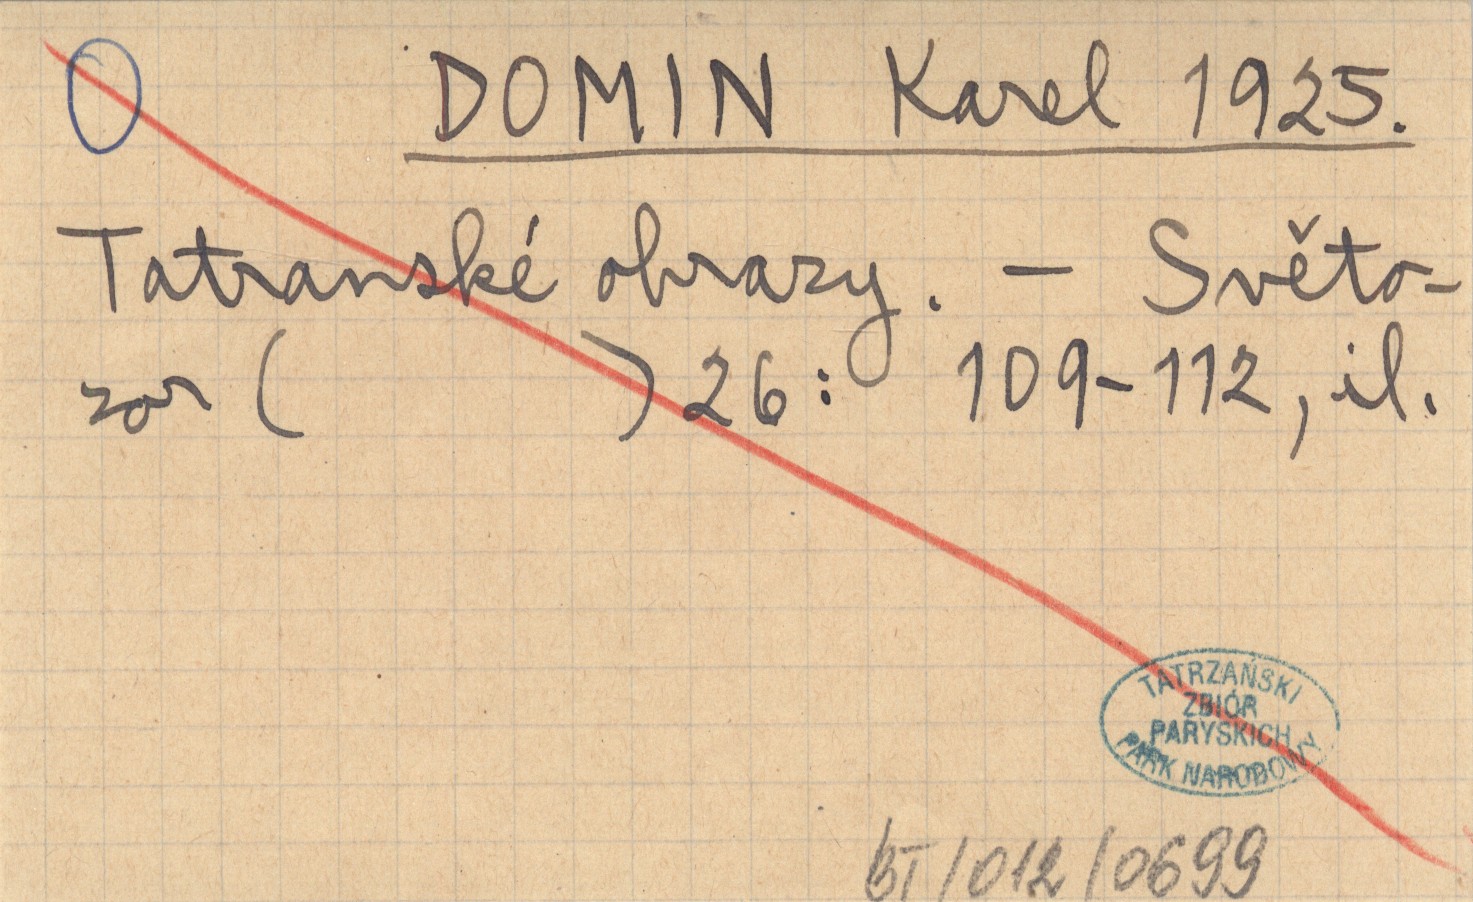 DOMIN Karel 1925.
Tatranské obrazy. – Světo-
zor (          ) 26: 109-112, il.
TATRZAŃSKI
ZBIÓR
PARYSKICH
PARK NARODOWY
BT/012/0699